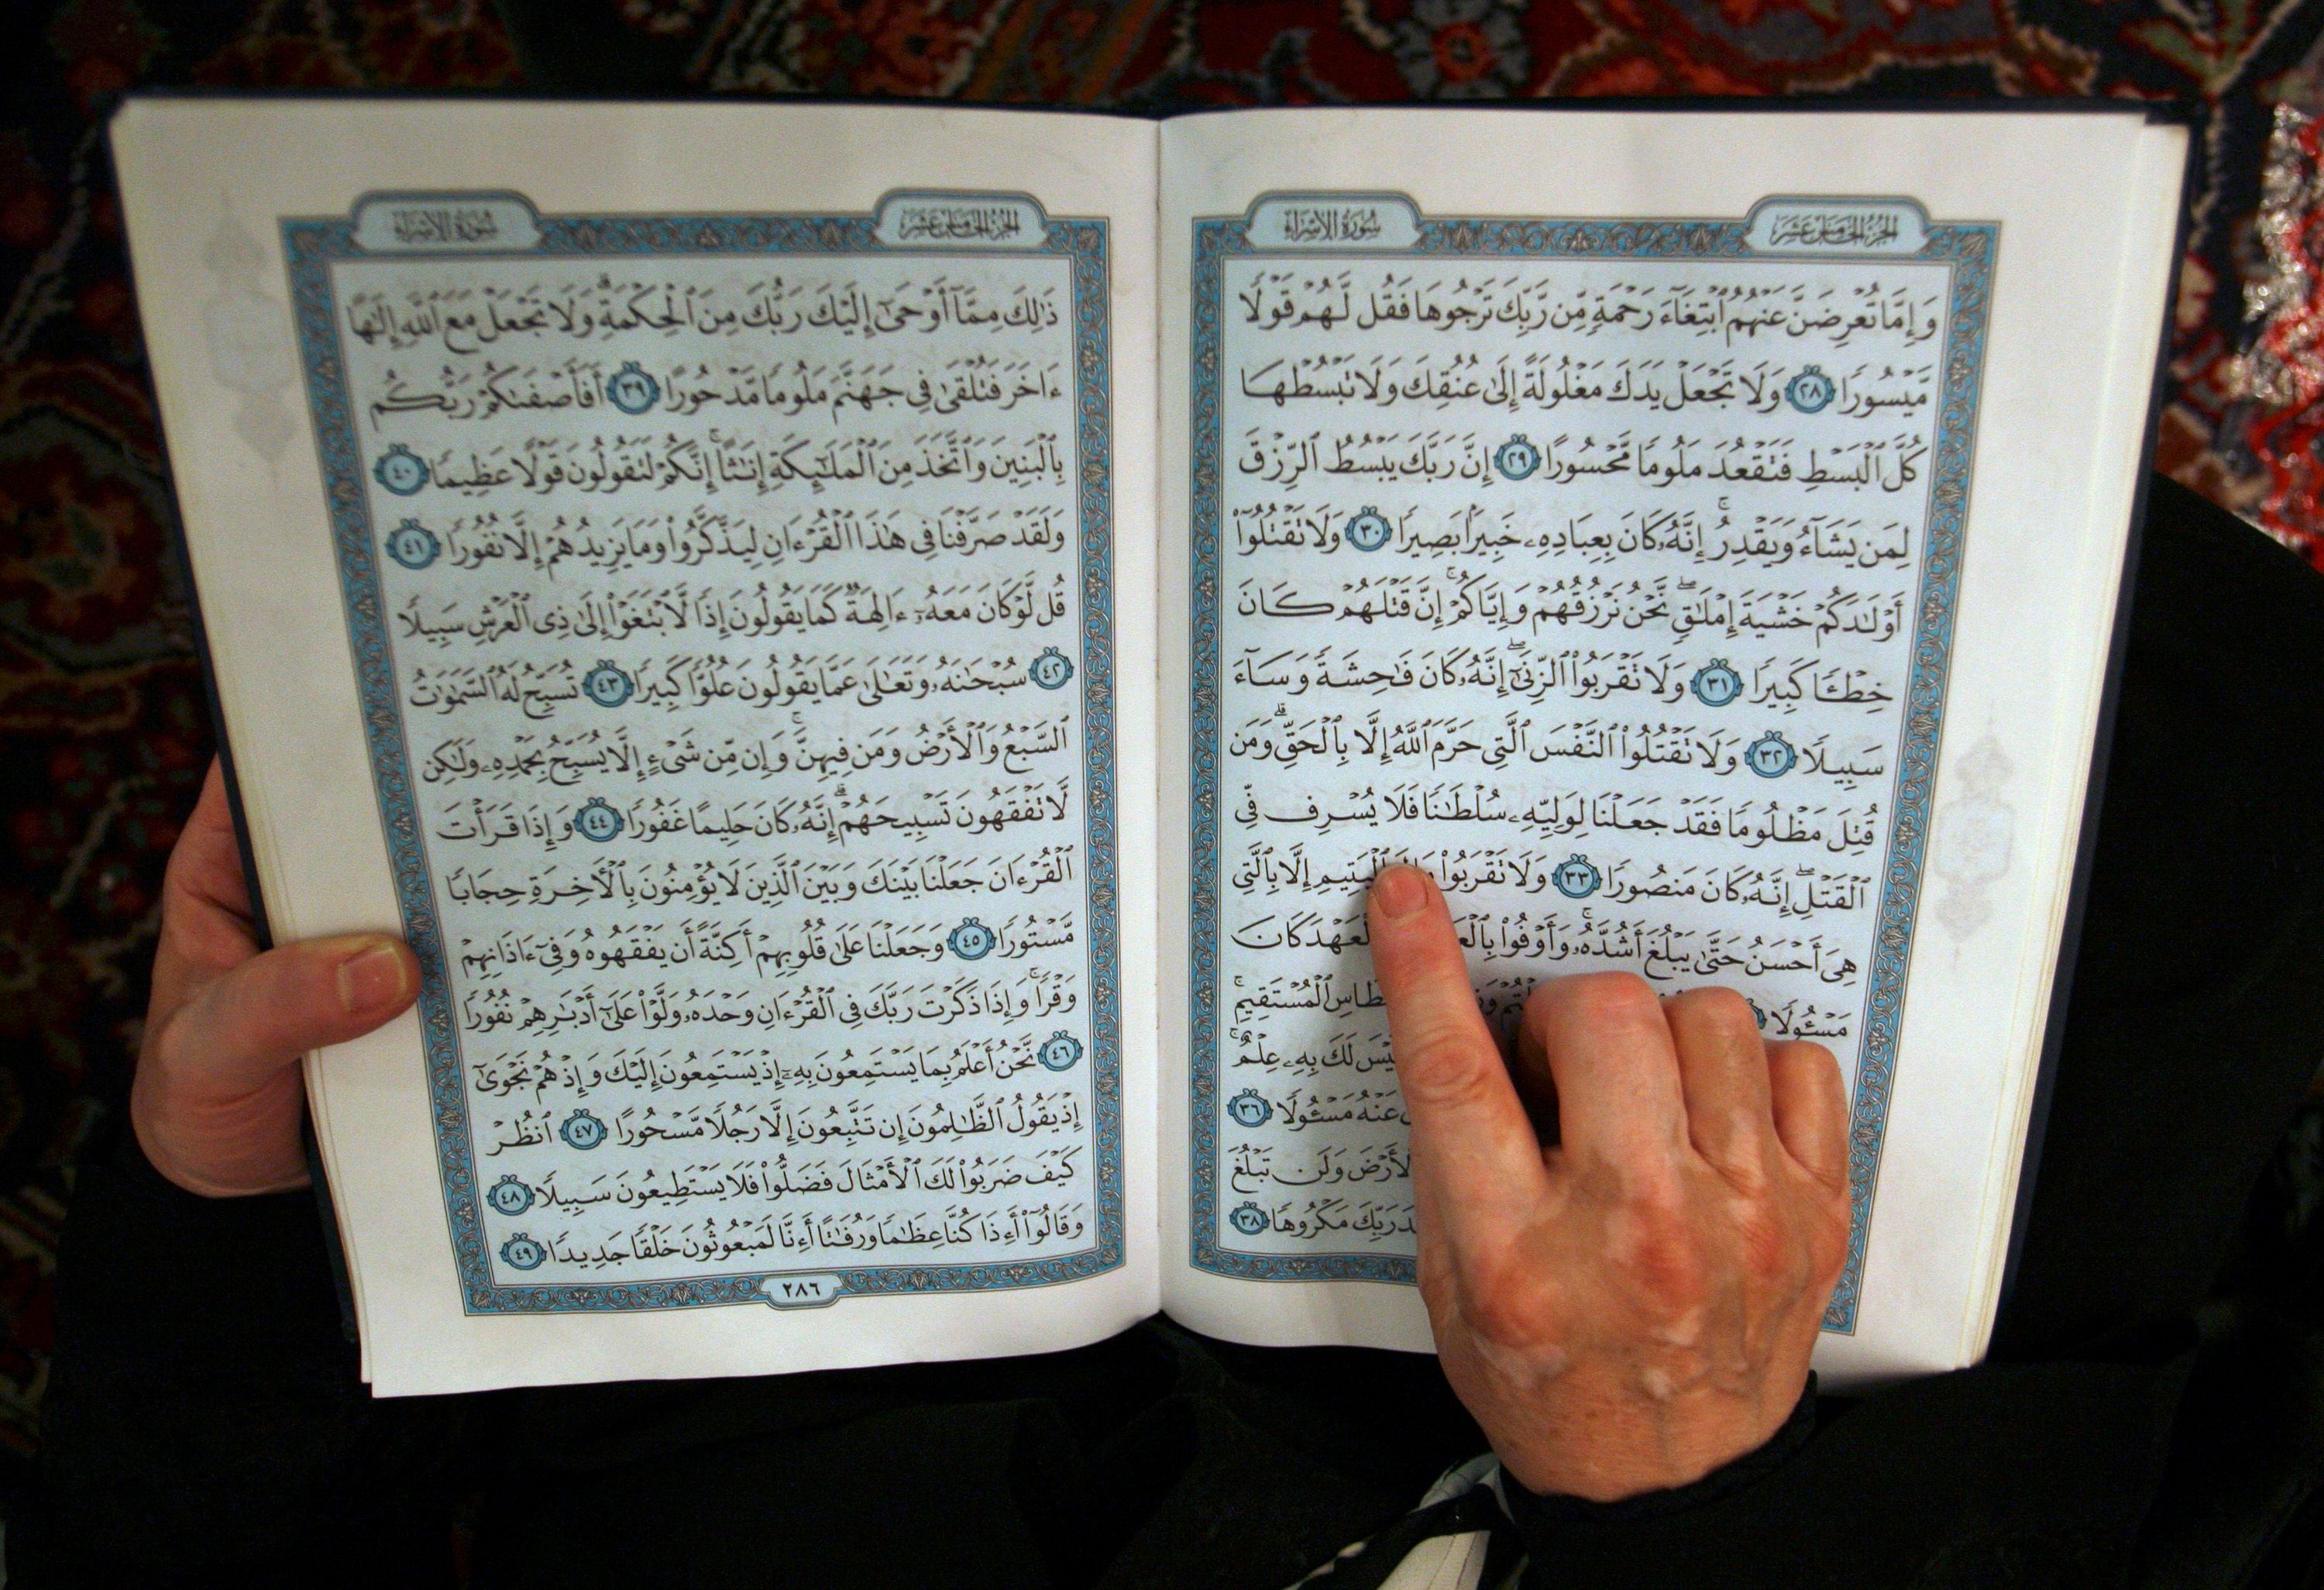 الجزء الخامس عشر
سورة الإسراء
وَإِمَّا تُعْرِضَنَّ عَنْهُمُ ٱبْتِغَآءَ رَحْمَةٍ مِّن رَّبِّكَ تَرْجُوهَا فَقُل لَّهُمْ قَوْلًا
مَّيْسُورًا ٢٨ وَلَا تَجْعَلْ يَدَكَ مَغْلُولَةً إِلَىٰ عُنُقِكَ وَلَا تَبْسُطْهَا
كُلَّ ٱلْبَسْطِ فَتَقْعُدَ مَلُومًا مَّحْسُورًا ٢٩ إِنَّ رَبَّكَ يَبْسُطُ ٱلرِّزْقَ
لِمَن يَشَآءُ وَيَقْدِرُ ۚ إِنَّهُۥ كَانَ بِعِبَادِهِۦ خَبِيرًۢا بَصِيرًا ٣٠ وَلَا تَقْتُلُوٓا۟
أَوْلَـٰدَكُمْ خَشْيَةَ إِمْلَـٰقٍ ۖ نَّحْنُ نَرْزُقُهُمْ وَإِيَّاكُمْ ۚ إِنَّ قَتْلَهُمْ كَانَ
خِطْـًٔا كَبِيرًا ٣١ وَلَا تَقْرَبُوا۟ ٱلزِّنَىٰٓ ۖ إِنَّهُۥ كَانَ فَـٰحِشَةً وَسَآءَ
سَبِيلًا ٣٢ وَلَا تَقْتُلُوا۟ ٱلنَّفْسَ ٱلَّتِى حَرَّمَ ٱللَّهُ إِلَّا بِٱلْحَقِّ ۗ وَمَن
قُتِلَ مَظْلُومًا فَقَدْ جَعَلْنَا لِوَلِيِّهِۦ سُلْطَـٰنًا فَلَا يُسْرِف فِّى
ٱلْقَتْلِ ۖ إِنَّهُۥ كَانَ مَنصُورًا ٣٣ وَلَا تَقْرَبُوا۟ ٱلْيَتِيمِ إِلَّا بِٱلَّتِى
هِىَ أَحْسَنُ حَتَّىٰ يَبْلُغَ أَشُدَّهُۥ ۚ وَأَوْفُوا۟ ٱلْعَهْدَ كَانَ
مَسْـُٔولًا ٱلْمُسْتَقِيمِ ۚ
لَيْسَ لَكَ بِهِۦ عِلْمٌ ۚ
عَنْهُ مَسْـُٔولًا ٣٦
ٱلْأَرْضَ وَلَن تَبْلُغَ
رَبِّكَ مَكْرُوهًا ٣٨
الجزء الخامس عشر
سورة الإسراء
ذَٰلِكَ مِمَّآ أَوْحَىٰٓ إِلَيْكَ رَبُّكَ مِنَ ٱلْحِكْمَةِ ۗ وَلَا تَجْعَلْ مَعَ ٱللَّهِ إِلَـٰهًا
ءَاخَرَ فَتُلْقَىٰ فِى جَهَنَّمَ مَلُومًا مَّدْحُورًا ٣٩ أَفَأَصْفَىٰكُمْ رَبُّكُم
بِٱلْبَنِينَ وَٱتَّخَذَ مِنَ ٱلْمَلَـٰٓئِكَةِ إِنَـٰثًا ۚ إِنَّكُمْ لَتَقُولُونَ قَوْلًا عَظِيمًا ٤٠
وَلَقَدْ صَرَّفْنَا فِى هَـٰذَا ٱلْقُرْءَانِ لِيَذَّكَّرُوا۟ وَمَا يَزِيدُهُمْ إِلَّا نُفُورًا ٤١
قُل لَّوْ كَانَ مَعَهُۥٓ ءَالِهَةٌ كَمَا يَقُولُونَ إِذًا لَّٱبْتَغَوْا۟ إِلَىٰ ذِى ٱلْعَرْشِ سَبِيلًا
٤٢ سُبْحَـٰنَهُۥ وَتَعَـٰلَىٰ عَمَّا يَقُولُونَ عُلُوًّا كَبِيرًا ٤٣ تُسَبِّحُ لَهُ ٱلسَّمَـٰوَٰتُ
ٱلسَّبْعُ وَٱلْأَرْضُ وَمَن فِيهِنَّ ۚ وَإِن مِّن شَىْءٍ إِلَّا يُسَبِّحُ بِحَمْدِهِۦ وَلَـٰكِن
لَّا تَفْقَهُونَ تَسْبِيحَهُمْ ۗ إِنَّهُۥ كَانَ حَلِيمًا غَفُورًا ٤٤ وَإِذَا قَرَأْتَ
ٱلْقُرْءَانَ جَعَلْنَا بَيْنَكَ وَبَيْنَ ٱلَّذِينَ لَا يُؤْمِنُونَ بِٱلْـَٔاخِرَةِ حِجَابًا
مَّسْتُورًا ٤٥ وَجَعَلْنَا عَلَىٰ قُلُوبِهِمْ أَكِنَّةً أَن يَفْقَهُوهُ وَفِىٓ ءَاذَانِهِمْ
وَقْرًا ۚ وَإِذَا ذَكَرْتَ رَبَّكَ فِى ٱلْقُرْءَانِ وَحْدَهُۥ وَلَّوْا۟ عَلَىٰٓ أَدْبَـٰرِهِمْ نُفُورًا
٤٦ نَّحْنُ أَعْلَمُ بِمَا يَسْتَمِعُونَ بِهِۦٓ إِذْ يَسْتَمِعُونَ إِلَيْكَ وَإِذْ هُمْ نَجْوَىٰٓ
إِذْ يَقُولُ ٱلظَّـٰلِمُونَ إِن تَتَّبِعُونَ إِلَّا رَجُلًا مَّسْحُورًا ٤٧ ٱنظُرْ
كَيْفَ ضَرَبُوا۟ لَكَ ٱلْأَمْثَالَ فَضَلُّوا۟ فَلَا يَسْتَطِيعُونَ سَبِيلًا ٤٨
وَقَالُوٓا۟ أَءِذَا كُنَّا عِظَـٰمًا وَرُفَـٰتًا أَءِنَّا لَمَبْعُوثُونَ خَلْقًا جَدِيدًا ٤٩
٢٨٦